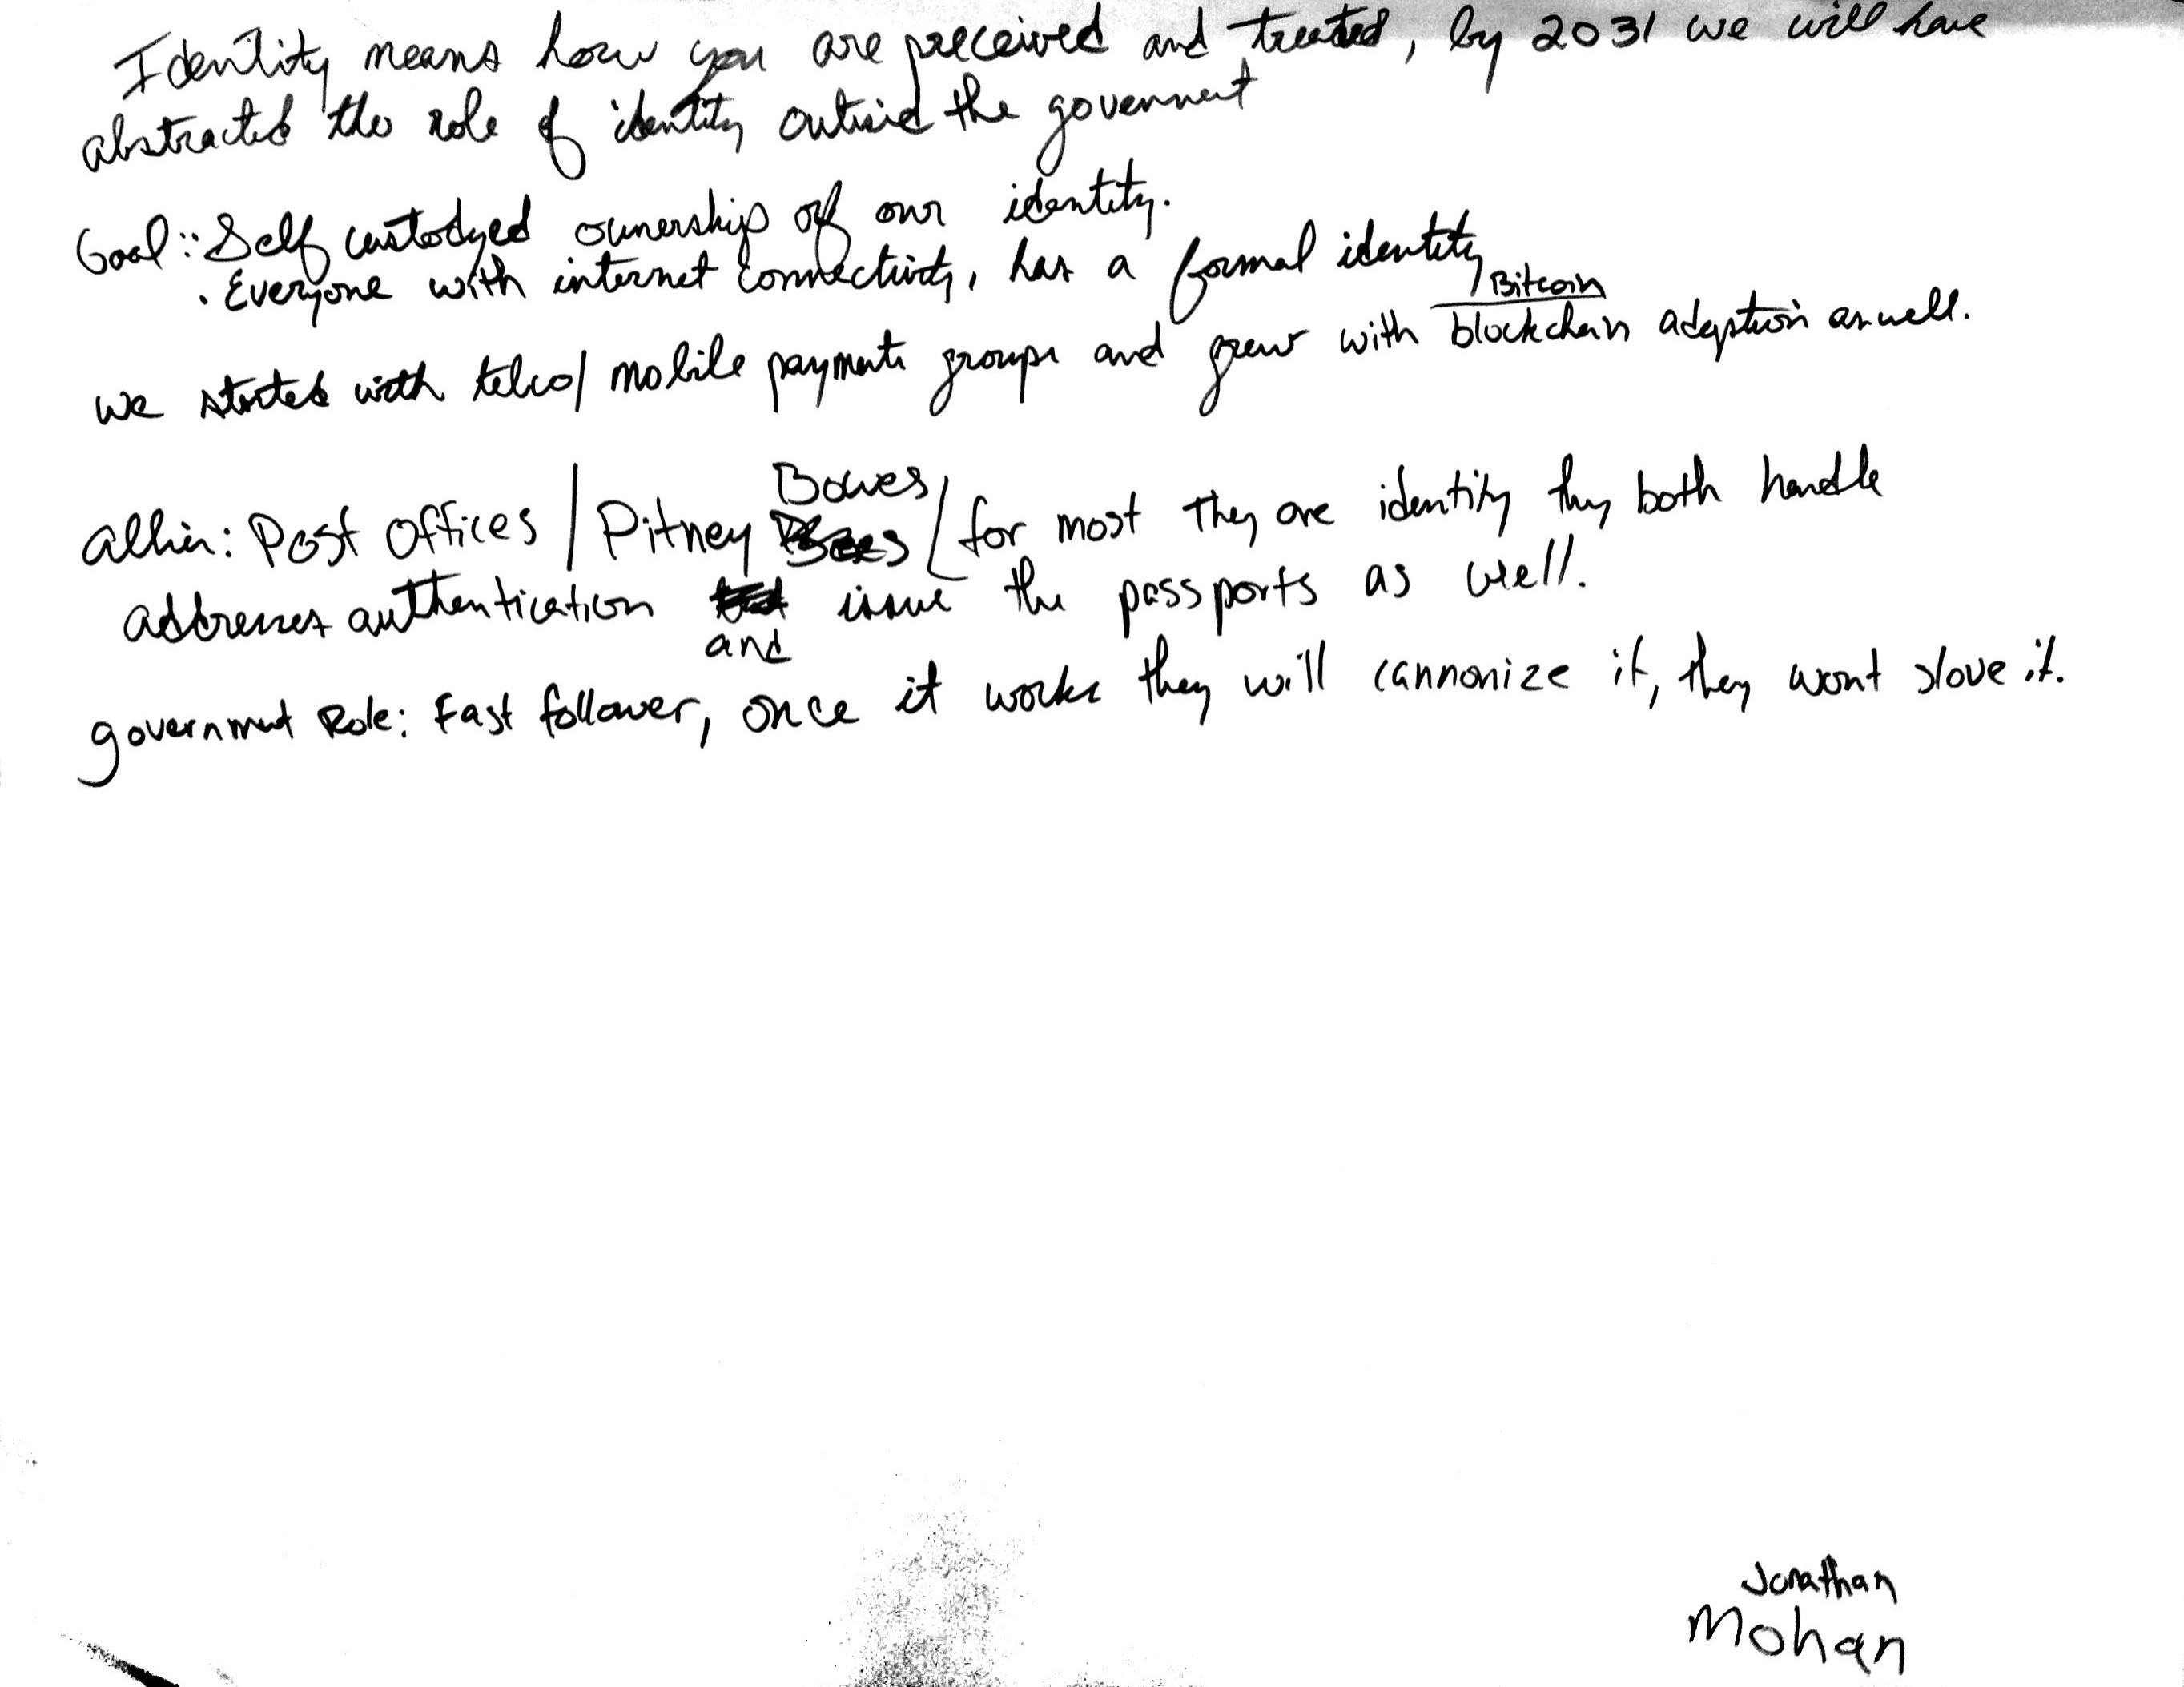 Identity means how you are preceived and treated, by 2031 we will have
abstracted the role of identity outsied the govenment
Goal:: Self custodyed ownership of our identity.
. Everyone with internet connectivity, has a formal identity
Bitcoin
we started with telco/ mobile payments groups and grew with blockchain adoption as well.
Bowes
Allies: Post Offices / Pitney for most They are identity they both handle
addresses authentication issue the passports as well.
and
government Role: Fast follower, once it works they will cannonize it, they wont slove it.
Jonathan
Mohan